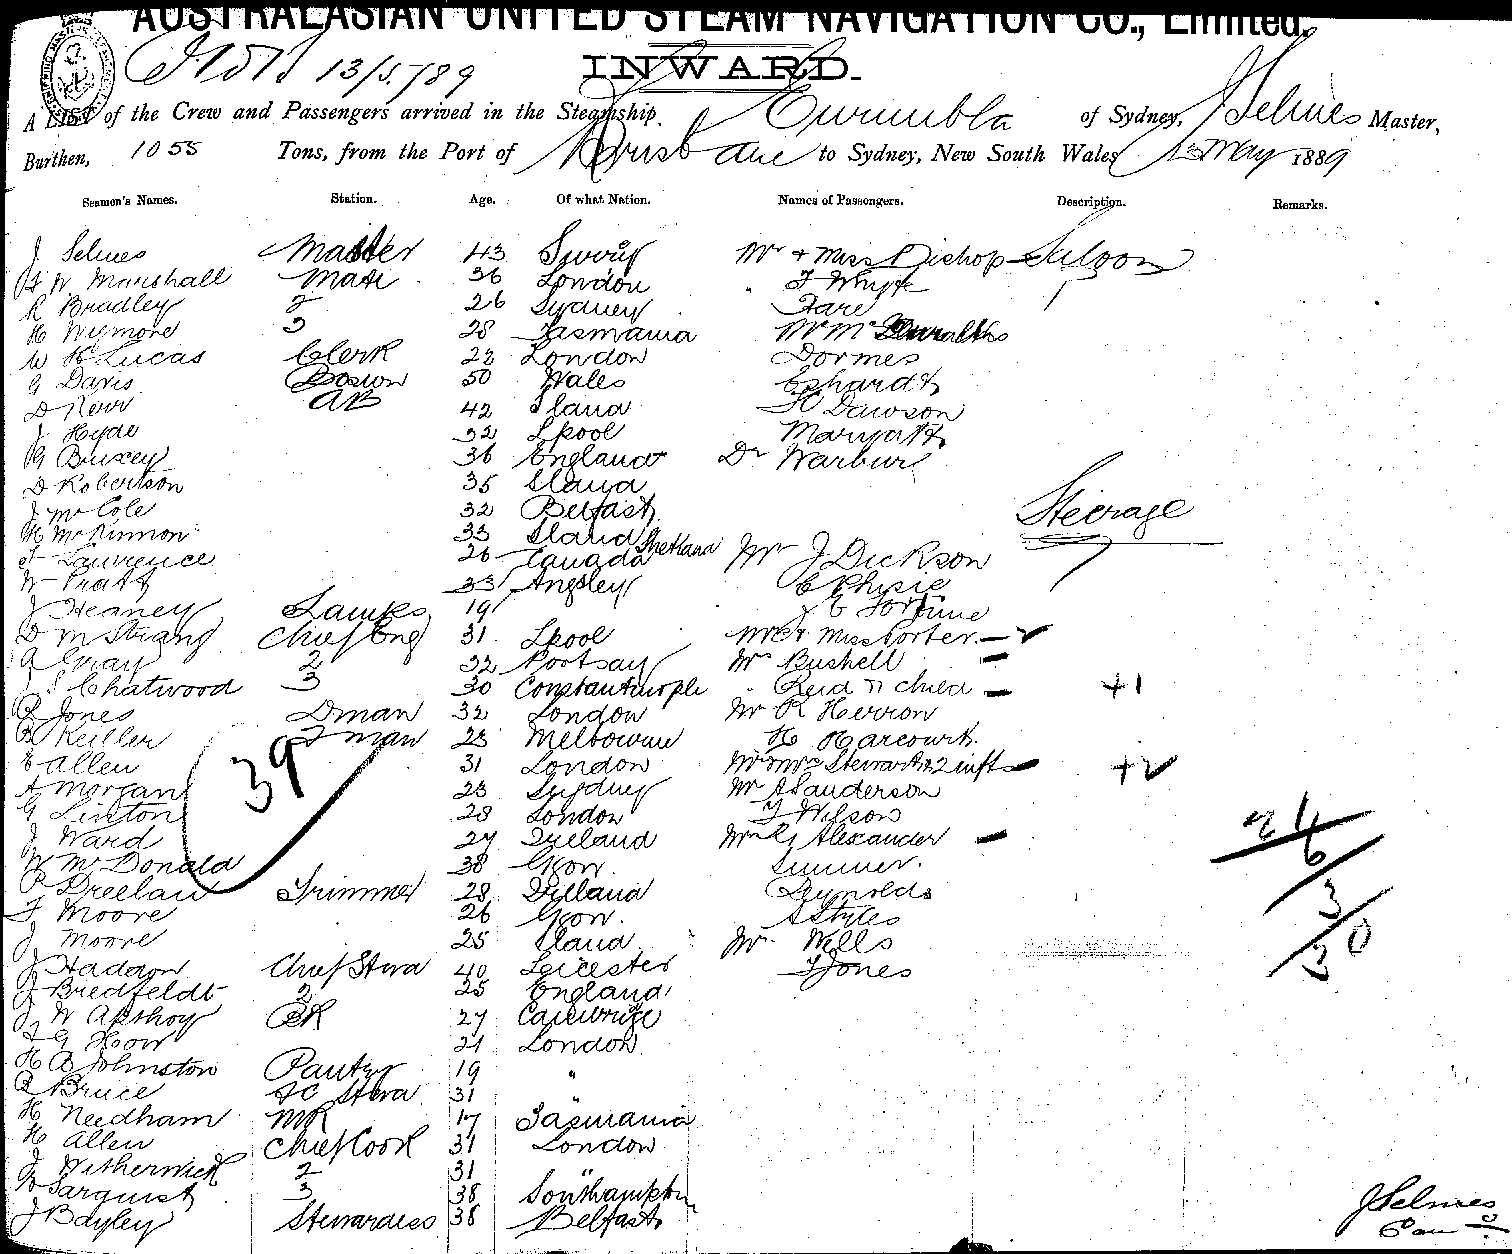 AUSTRALASIAN UNITED STEAM NAVIGATION CO., Limited.
13/5/89
INWARD.
A LIST of the Crew and Passengers arrived in the Steamship, Eurimbla of Sydney, J Selmes Master,
Burthen, 1055 Tons, from the Port of Brisbane to Sydney, New South Wales May 1889
Seamen's Names. Station. Age. Of what Nation. Names of Passengers. Description. Remarks.
J Selmes Master 43 Surrey Mr + Miss Bishop Saloon
F W Marshall Mate 36 London F Whyte
R Bradley 2 26 Sydney Fare
H Wigmore 3 28 Tasmania Mr Mc
W H Lucas Clerk 22 London Dormes
G Davis Bosun 50 Wales Ephardt
D Kerr AB 42 Sland H Dawson
J Hyde 32 Lpool Maryatt
G Buxey 36 England Dr Warbur
D Robertson 35 Sland
J McCole 32 Belfast Steerage
H McKinnon 33 Sland
F Lawrence 26 Canada Shetland Mr J Dickson
W Pratt 33 Anglsey
J Heaney Lamps 19 E Fortune
D M Strang Chief Eng 31 Lpool Mr & Miss Porter
A Gray 2 32 Mr Bushell
J S Chatwood 3 30 Constantinople Reid & child +1
R Jones Dman 32 London Mr R Herron
R Keiller Fman 23 Melbourne H Harcourt
E Allen 31 London Mr Mrs Stewart & 2 infts +2
A Morgan 23 Sydney Mr A Sanderson
G Linton 28 London F Wilson
J Ward 27 Ireland Mr G Alexander
W McDonald 38 Ggow Sumner
P Dreelan Trimmer 28 Ireland Reynolds
F Moore 26 Ggow A Styles
J Moore 25 Sland Mr Wells
J Haddon Chief Stwd 40 Leicester F Jones
J Bredfeldt 2 25 England
J W Apthoy BR 27
G How 21 London
H B Johnston Pantry 19 "
R Bruce FC Stwd 31
H Needham MR 17 Tasmania
H Allen Chief Cook 31 London
J Witherwick 2 31 "
Sarquist 3 38 Southampton
J Bayley Stewardess 38 Belfast
39
24
6
30
J Selmes